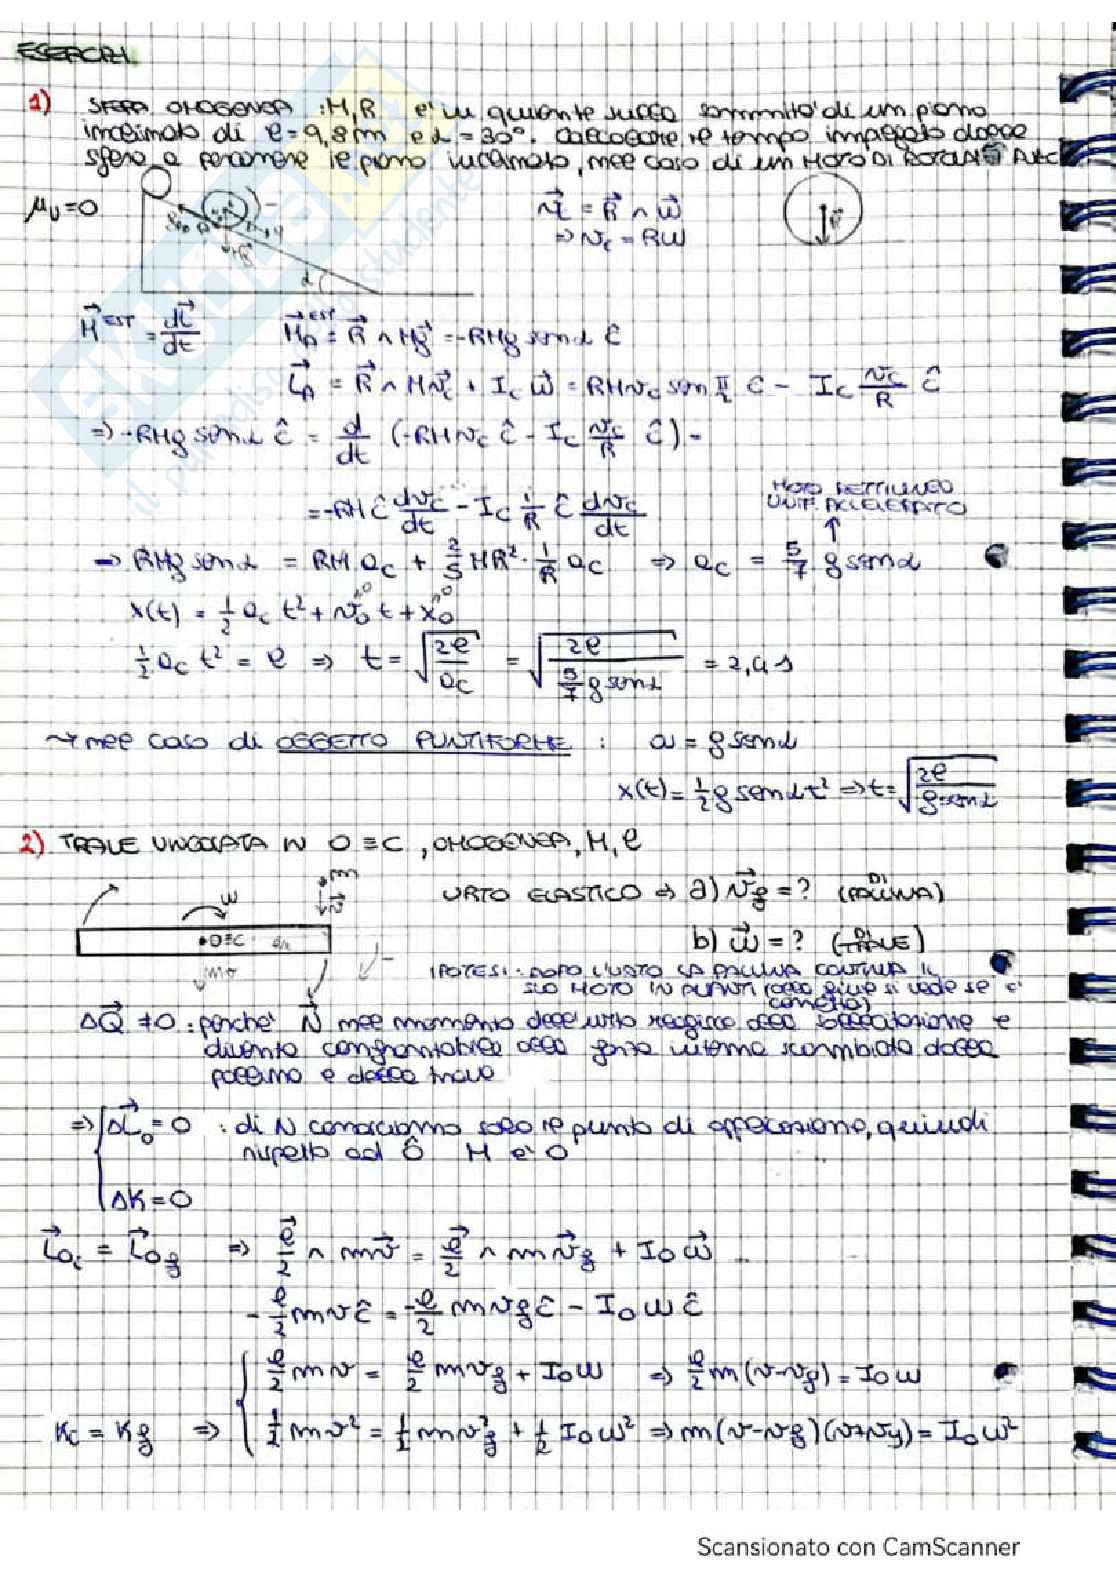 ESERCIZI
1) SFERA OMOGENEA : M, R è in quiete sulla sommità di un piano
inclinato di l = 9,8 m e α = 30°. Calcolare il tempo impiegato dalla
sfera a percorrere il piano inclinato, nel caso di un MOTO DI
μ_v = 0
v_c = R ∧ ω
⇒ v_c = Rω
M^EST = dL/dt M_A^EST = R ∧ Mg = -RMg sen α ĉ
L_A = R ∧ Mv_c + I_c ω = RMv_c sen π/2 ĉ - I_c v_c/R ĉ
⇒ -RMg sen α ĉ = d/dt (-RMv_c ĉ - I_c v_c/R ĉ) =
MOTO RETTILINEO
UNIF. ACCELERATO
= -RM ĉ dv_c/dt - I_c 1/R ĉ dv_c/dt
⇒ RMg sen α = RM a_c + 2/5 MR² · 1/R a_c ⇒ a_c = 5/7 g sen α
x(t) = 1/2 a_c t² + v_0 t + x_0
1/2 a_c t² = l ⇒ t = √(2l/a_c) = √(2l/(5/7 g sen α)) = 2,4 s
→ nel caso di OGGETTO PUNTIFORME : a = g sen α
x(t) = 1/2 g sen α t² ⇒ t = √(2l/(g sen α))
2) TRAVE VINCOLATA IN O ≡ C, OMOGENEA, M, l
URTO ELASTICO ⇒ a) v_f = ? (DI PALLINA)
b) ω = ? (DI TRAVE)
IPOTESI: DOPO L'URTO LA PALLINA CONTINUA IL
SUO MOTO IN AVANTI (alla fine si vede se è
corretto)
ΔQ ≠ 0 : perché N nel momento dell'urto reagisce alla sollecitazione e
diventa confrontabile alla forza interna scambiata dalla
pallina e dalla trave
⇒ ΔL_o = 0 : di N conosciamo solo il punto di applicazione, quindi
rispetto ad O M è 0
ΔK = 0
L_oi = L_of ⇒ l/2 ∧ mv = l/2 ∧ mv_f + I_o ω
-l/2 mv ĉ = -l/2 mv_f ĉ - I_o ω ĉ
l/2 mv = l/2 mv_f + I_o ω ⇒ l/2 m(v-v_f) = I_o ω
K_i = K_f ⇒ 1/2 mv² = 1/2 mv_f² + 1/2 I_o ω² ⇒ m(v-v_f)(v+v_f) = I_o ω²
Scansionato con CamScanner